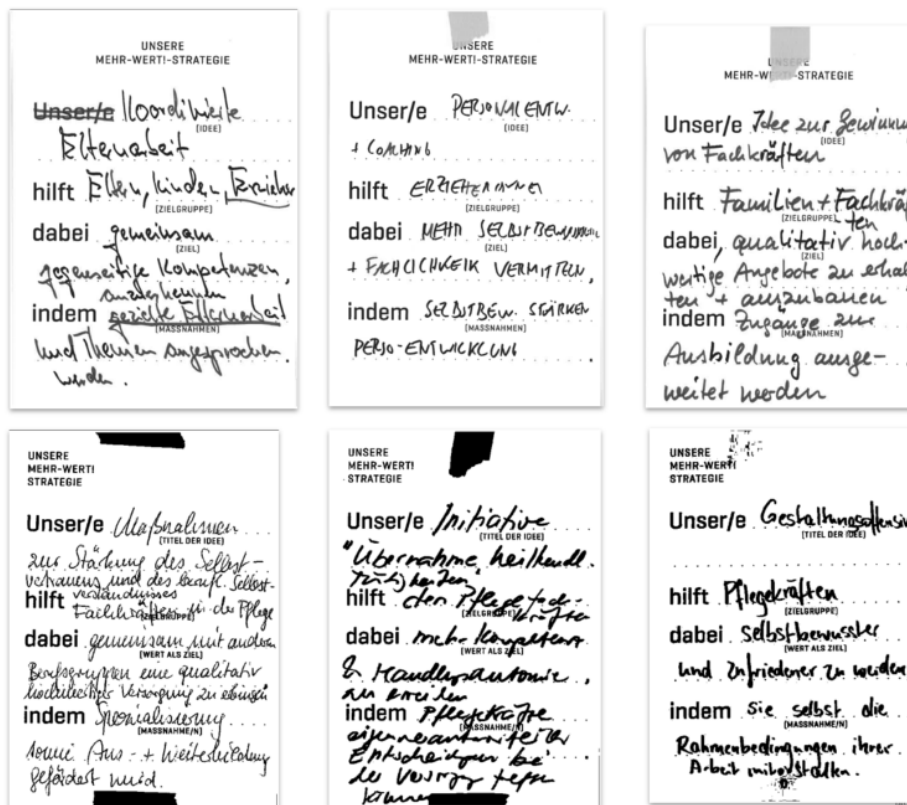 UNSERE
MEHR-WERT!-STRATEGIE
Unser/e Koordinierte
[IDEE]
Elternarbeit
hilft Eltern, Kinder, Erzieher
[ZIELGRUPPE]
dabei gemeinsam
[ZIEL]
gegenseitige Kompetenzen
anzuerkennen
indem gezielte Elternarbeit
[MASSNAHMEN]
und Themen angesprochen
werden.
UNSERE
MEHR-WERT!-STRATEGIE
Unser/e PERSONALENTW.
[IDEE]
+ COACHING
hilft ERZIEHERINNEN
[ZIELGRUPPE]
dabei MEHR
[ZIEL]
+ FACHLICHKEIT VERMITTELN,
indem SELBSTBEW. STÄRKEN
[MASSNAHMEN]
PERSO-ENTWICKLUNG
UNSERE
MEHR-WERT!-STRATEGIE
Unser/e Idee zur Gewinnun
[IDEE]
von Fachkräften
hilft Familien + Fachkräf
[ZIELGRUPPE]
ten
dabei, qualitativ hoch-
[ZIEL]
wertige Angebote zu erhal
ten + auszubauen
indem Zugänge zur
[MASSNAHMEN]
Ausbildung ausge-
weitet werden
UNSERE
MEHR-WERT!
STRATEGIE
Unser/e Maßnahmen
[TITEL DER IDEE]
zur Stärkung des Selbst-
vertrauens und des berufl. Selbst-
verständnisses
hilft Fachkräften in der Pflege
[ZIELGRUPPE]
dabei gemeinsam mit anderen
[WERT ALS ZIEL]
Berufsgruppen eine qualitativ
Versorgung zu
indem Spezialisierung
[MASSNAHME/N]
sowie Aus- + Weiterbildung
gefördert wird.
UNSERE
MEHR-WERT!
STRATEGIE
Unser/e Initiative
[TITEL DER IDEE]
"Übernahme heilkundl.
Tätigkeiten"
hilft den Pflegefach-
kräften
[ZIELGRUPPE]
dabei mehr Kompetenz
[WERT ALS ZIEL]
& Handlungsautonomie
zu erzielen
indem Pflegekräfte
[MASSNAHME/N]
Entscheidungen bei
der
können
UNSERE
MEHR-WERT!
STRATEGIE
Unser/e Gestaltungsoffensiv
[TITEL DER IDEE]
hilft Pflegekräften
[ZIELGRUPPE]
dabei selbstbewusster
[WERT ALS ZIEL]
und zufriedener zu werden
indem sie selbst die
[MASSNAHME/N]
Rahmenbedingungen ihrer
Arbeit mitgestalten.